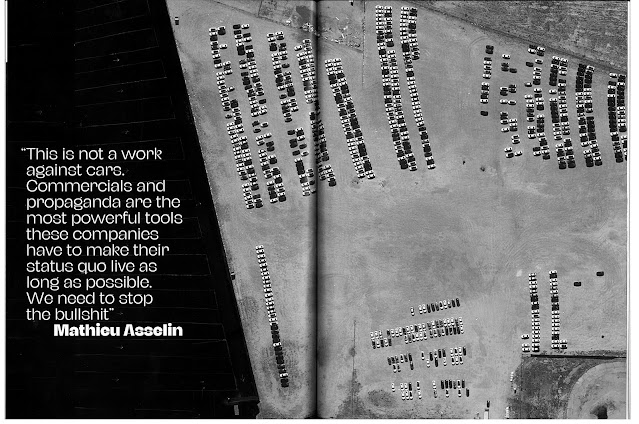 “This is not a work
against cars.
Commercials and
propaganda are the
most powerful tools
these companies
have to make their
status quo live as
long as possible.
We need to stop
the bullshit”
Mathieu Asselin